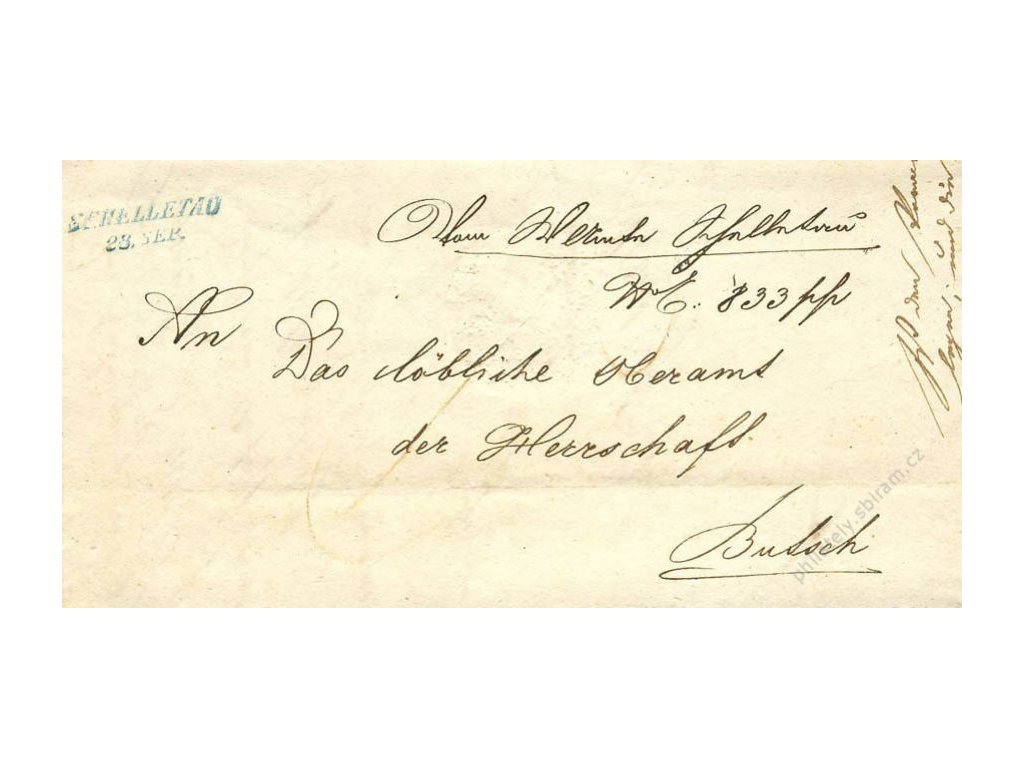 SCHELLETAU
23. SEP.
Vom Amte Schelletau
N. E. 833 pp
An
Das löbliche Oberamt
der Herrschaft
Butsch
philately.sbiram.cz